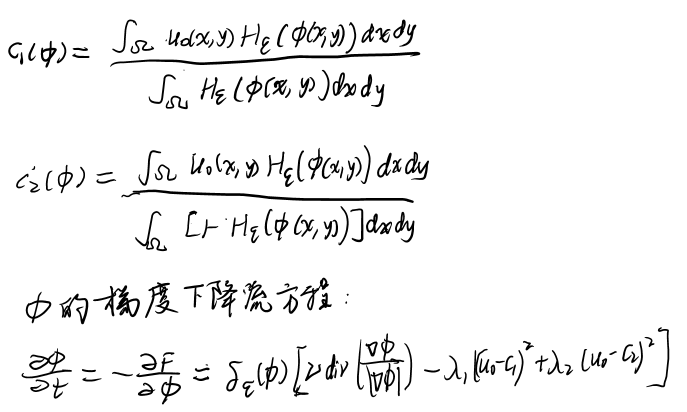 c₁(φ) = ∫_Ω u₀(x,y) H_ε(φ(x,y)) dxdy / ∫_Ω H_ε(φ(x,y)) dxdy
c₂(φ) = ∫_Ω u₀(x,y) H_ε(φ(x,y)) dxdy / ∫_Ω [1 - H_ε(φ(x,y))] dxdy
φ的梯度下降流方程:
∂φ/∂t = -∂F/∂φ = δ_ε(φ)[ν div(∇φ/|∇φ|) - λ₁(u₀-c₁)² + λ₂(u₀-c₂)²]